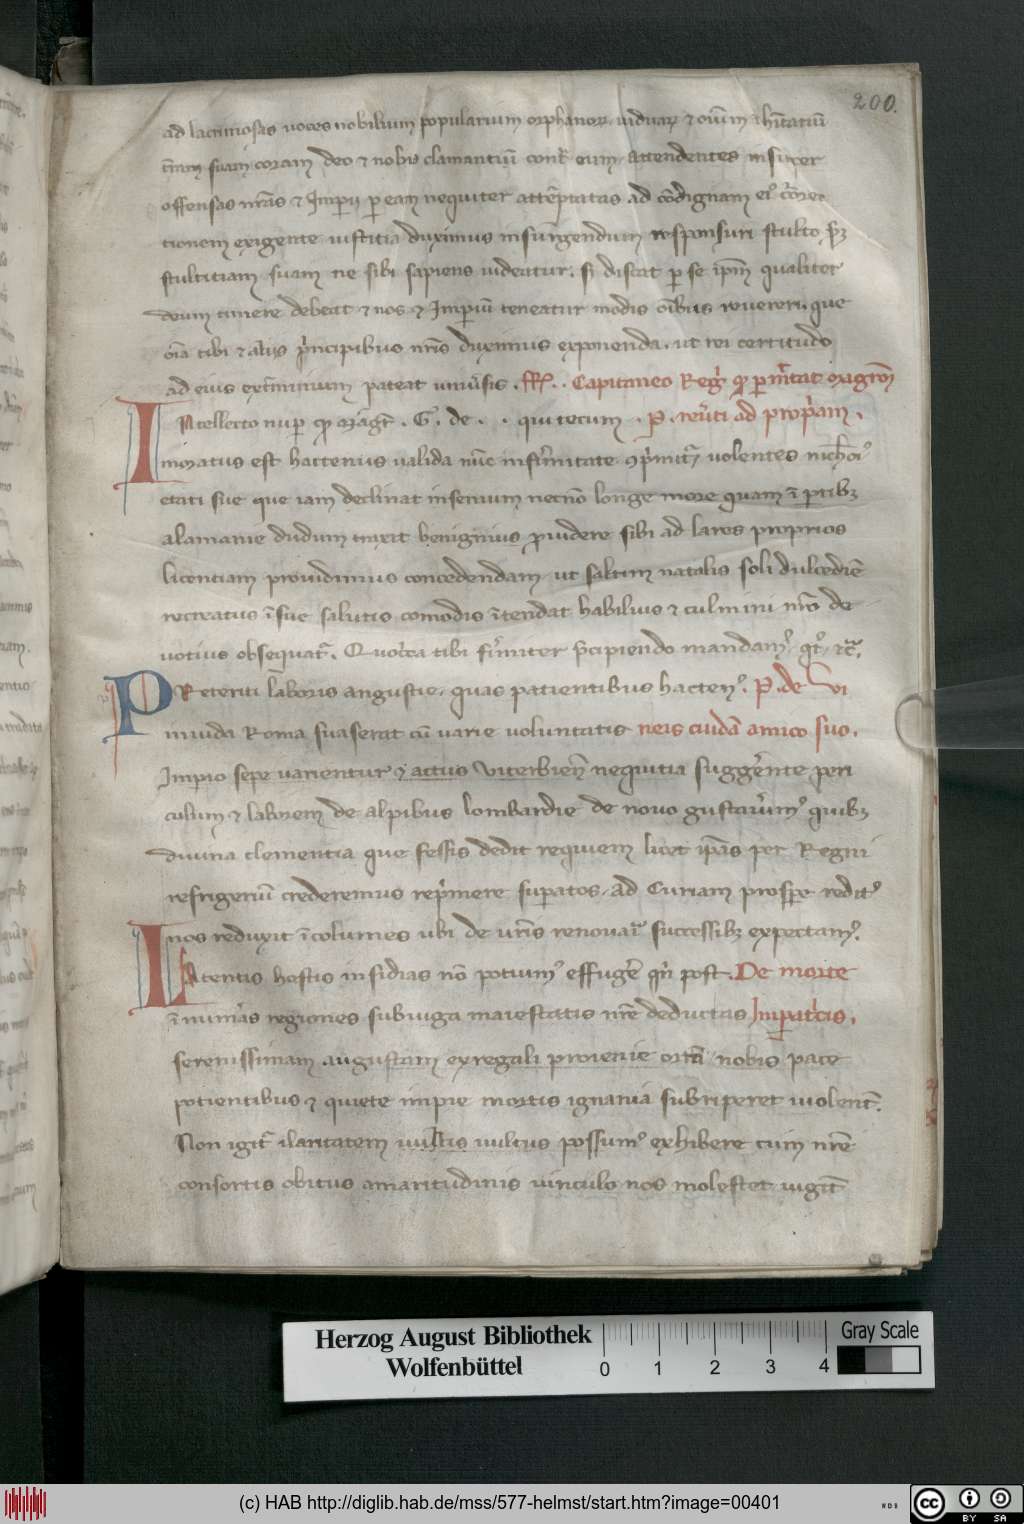 200.
ad lacrimosas uoces nobilium popularium orphanoꝝ uiduaꝝ ⁊ oīum īhītātiū
t̄ram suam coram deo ⁊ nobis clamantiū cont̄ eum attendentes insuper
offensas nr̄as ⁊ Imperij ꝑ eam nequiter attēptatas ad cōdignam ei⁹ cōrrec
tionem exigente iustitia duximus insurgendum responsuri stulto
stultitiam suam ne sibi sapiens uideatur. si discat ꝑ se ip̄m qualiter
deum timere debeat ⁊ nos ⁊ Imperiū teneatur modis oībus reuereri que
oīa tibi ⁊ alijs principibus nr̄is duximus exponenda. ut rei certitudo
ad eius exterminium pateat uniūsis. Capitaneo Reg̃ ꝙ permittat
Ntellecto nuꝑ ꝙ Magr̄ . G. de . . qui tecum . P. reuerti ad propriam .
moratus est hactenus ualida nūc infirmitate opprimitur uolentes
etati sue que iam declinat insenium necnō longe more quam ī ptibꝫ
alamanie dudum traxit benignius prouidere sibi ad lares proprios
licentiam prouidimus concedendam ut saltim natalis soli dulcedīe
recreatus ī sue salutis comodis ītendat habilius ⁊ culmini nr̄o de
uotius obsequat̄. Quocirca tibi firmiter precipiendo mandam⁹ ⁊c̄.
P Reteriti laboris angustie quas patientibus hacten⁹. P. de Vi
inuida Roma suaserat cū uarie uoluntatis neis cuidā amico suo.
Imperio sepe uarientur ⁊ actus Viterbien̄ nequitia suggerente peri
culum ⁊ laborem de alpibus lombardie de nouo gustauim⁹ quibꝫ
diuina clementia que fessis dedit requiem licet ip̄as per Regni
refrigeriū crederemus reprimere supatos ad Curiam prospere
nos reduxit īcolumes ubi de ur̄is renouari successibꝫ expectam⁹.
L Atentis hostis insidias nō potuim⁹ effugere qn̄ post. De morte
īnumeras regiones subiuga maiestatis nr̄e deductas Imperatricis.
serenissimam augustam ex regali proienie ortā nobis pace
potientibus ⁊ quiete impie mortis ignauia subriperet uiolent̄.
Non igit̄ ilaritatem uultus possum⁹ exhibere cum nr̄e
consortis obitus amaritudinis uinculo nos molestet
Herzog August Bibliothek
Wolfenbüttel
0 1 2 3 4
Gray Scale
(c) HAB http://diglib.hab.de/mss/577-helmst/start.htm?image=00401
WDB
cc BY SA